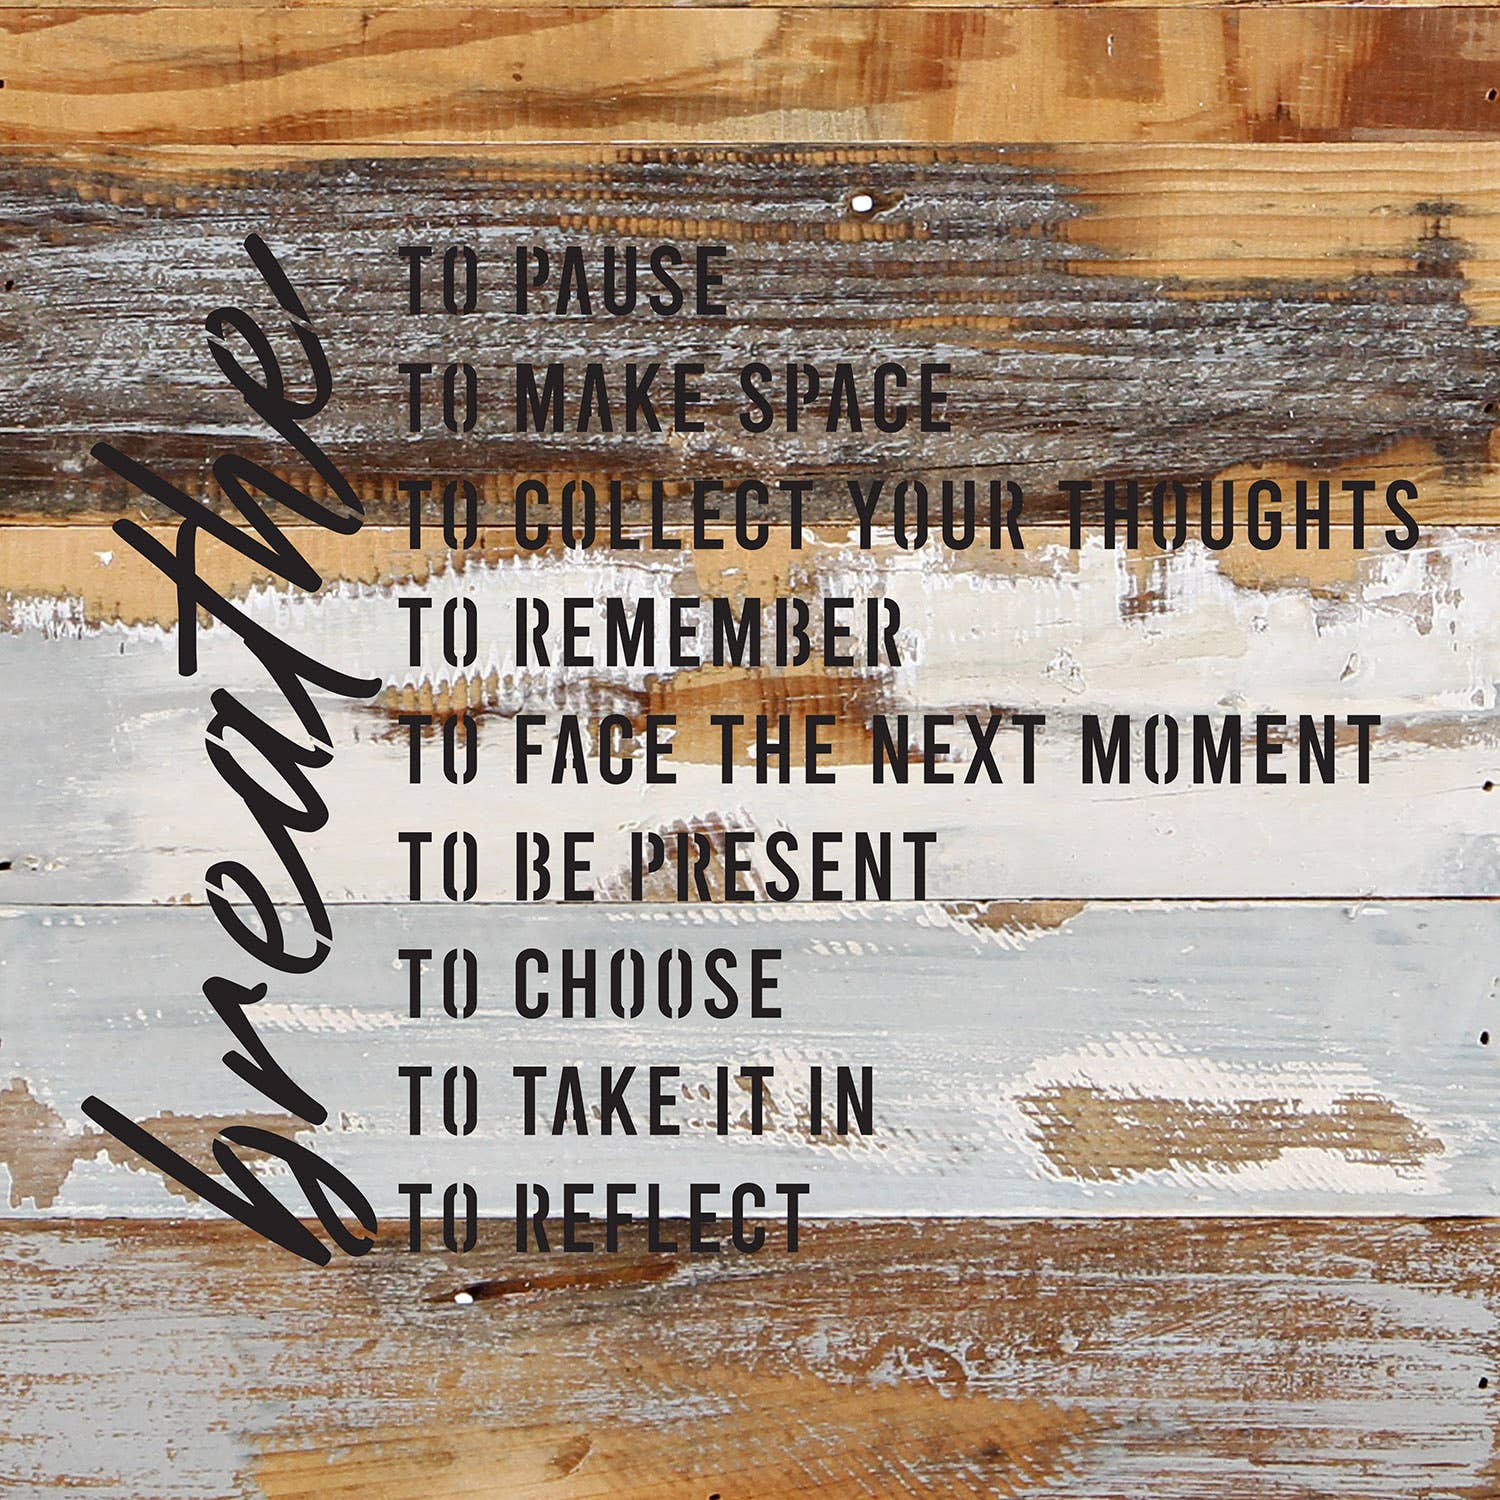 breathe,
TO PAUSE
TO MAKE SPACE
TO COLLECT YOUR THOUGHTS
TO REMEMBER
TO FACE THE NEXT MOMENT
TO BE PRESENT
TO CHOOSE
TO TAKE IT IN
TO REFLECT